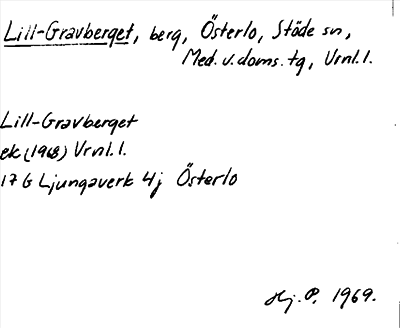 Lill-Gravberget, berg, Österlo, Stöde sn,
Med. v. doms. tg, Vrnl. l.
Lill-Gravberget
ek (1968) Vrnl. l.
17 G Ljungaverk 4j Österlo
Hj. P. 1969.